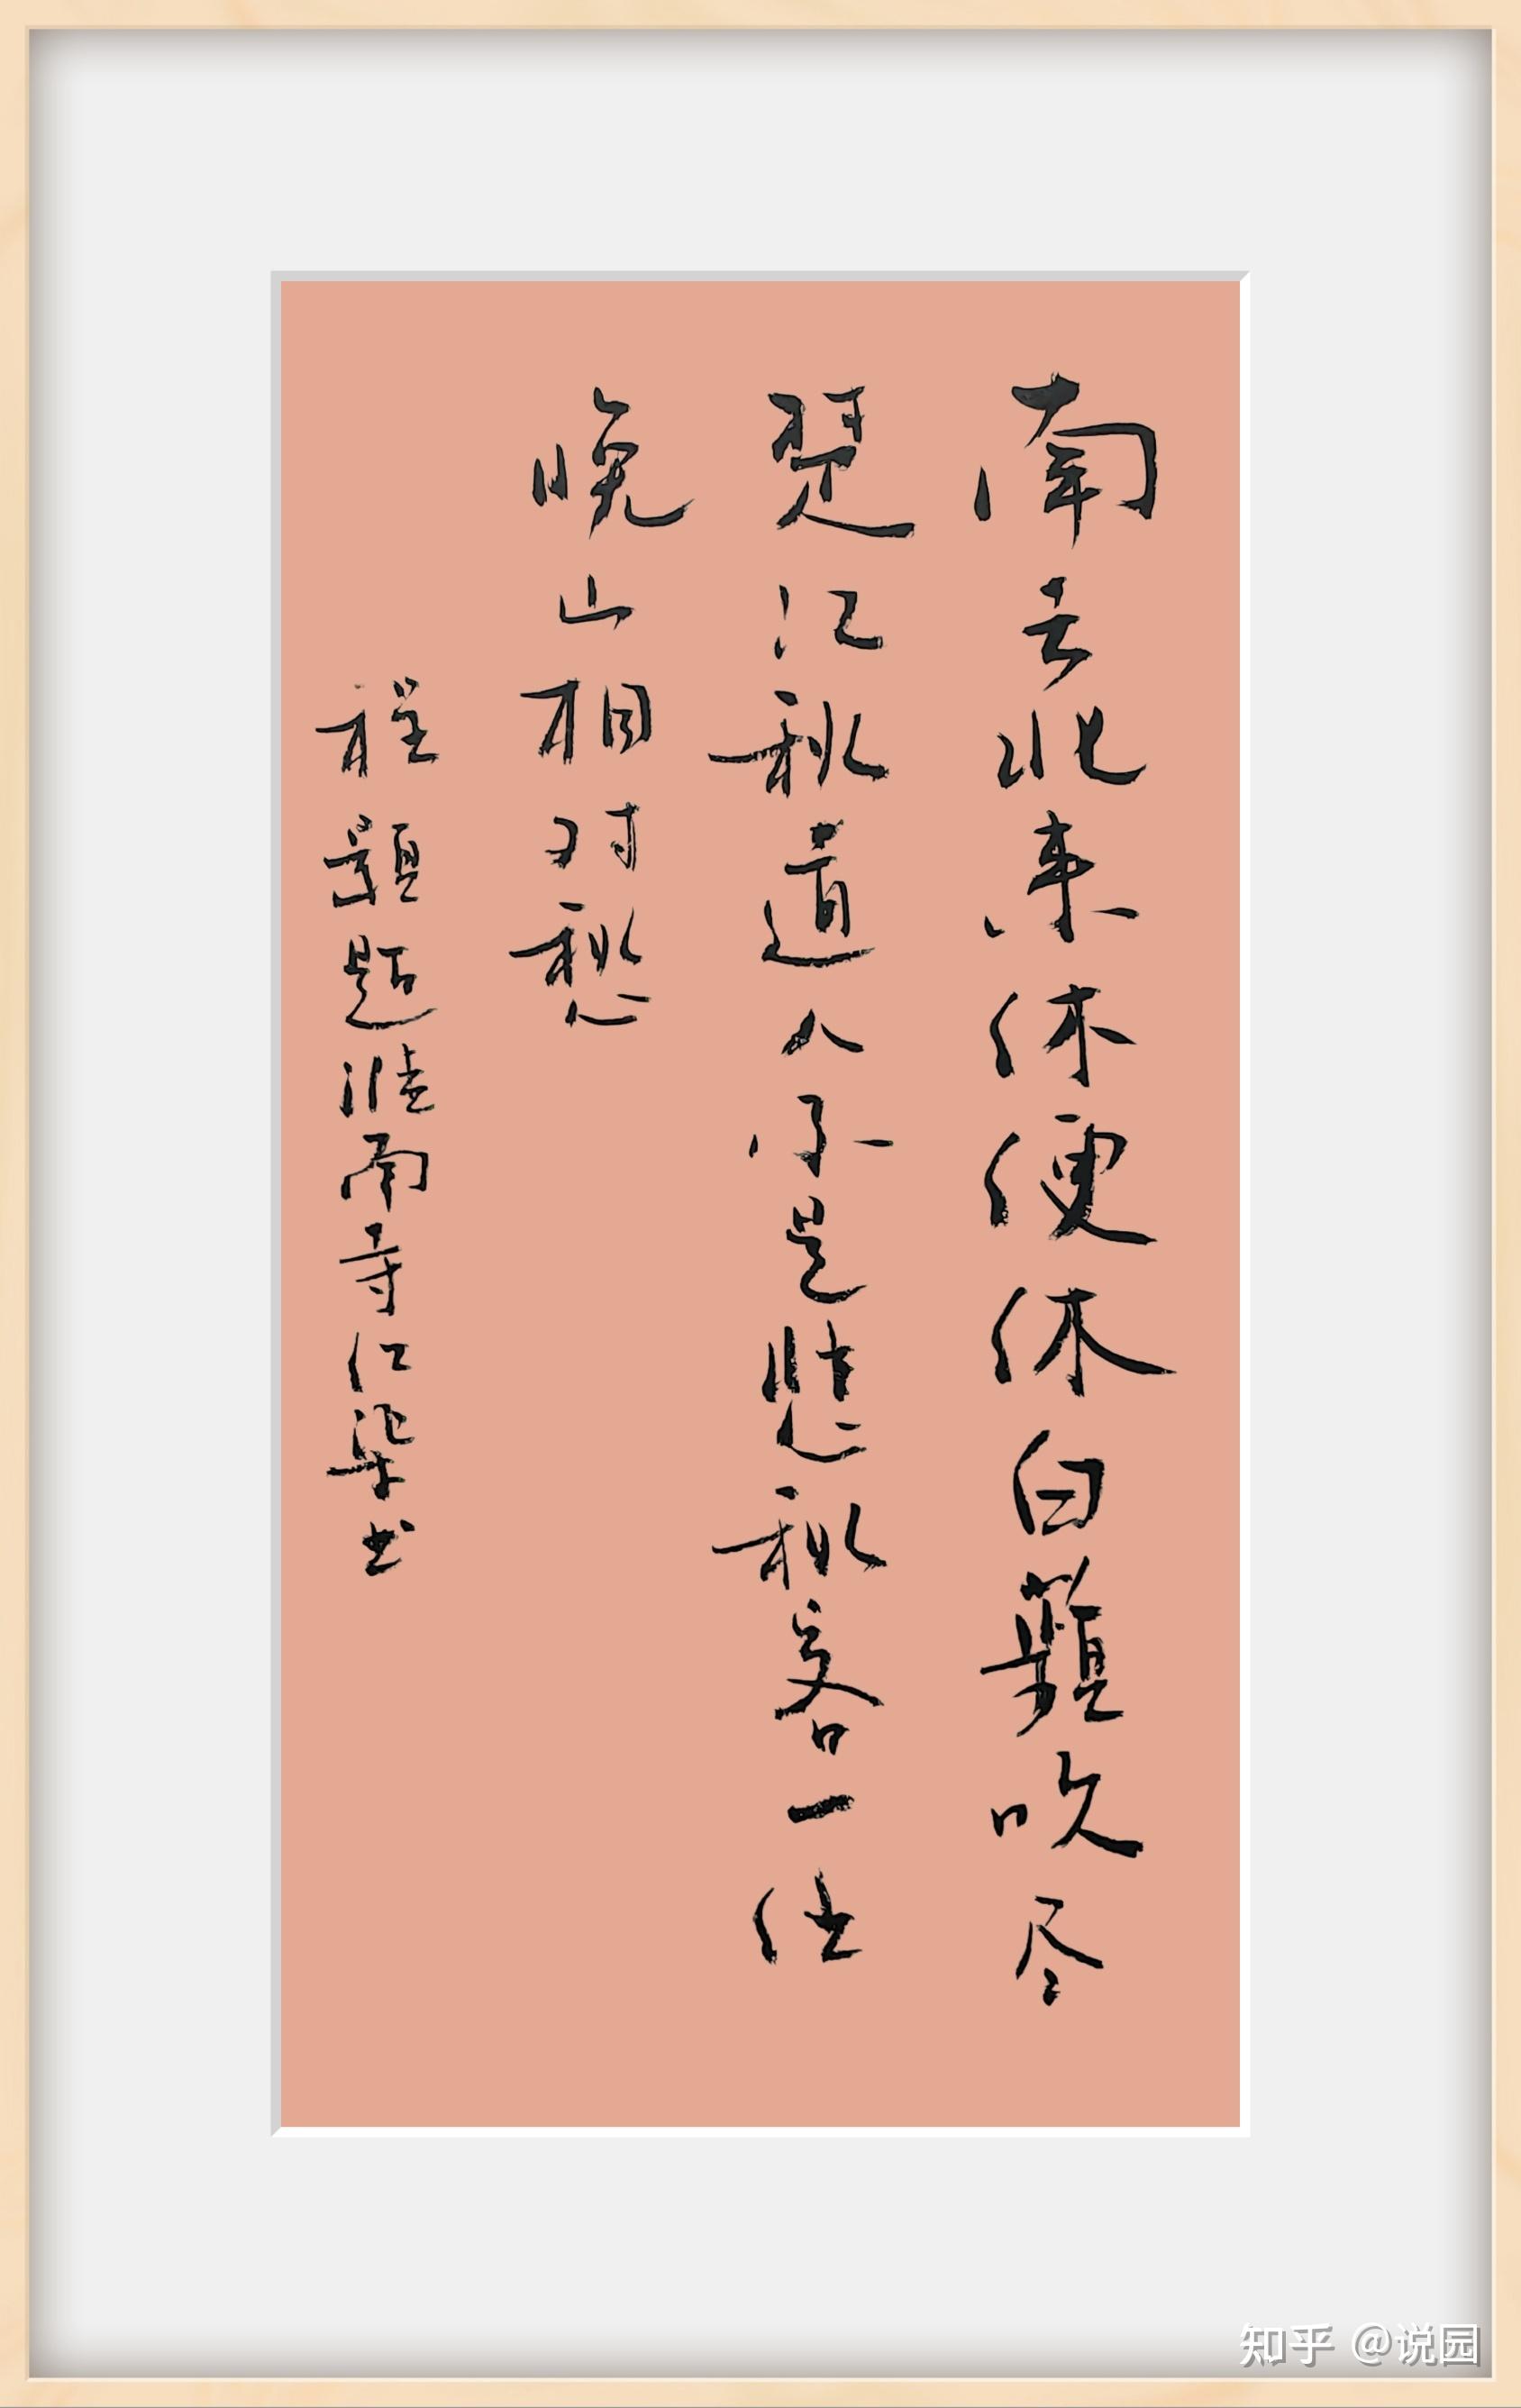 南去北来休便休白蘋吹尽
楚江秋道人不是悲秋客一任
晚山相对愁
程颢题淮南寺仁柒书
知乎 @说园